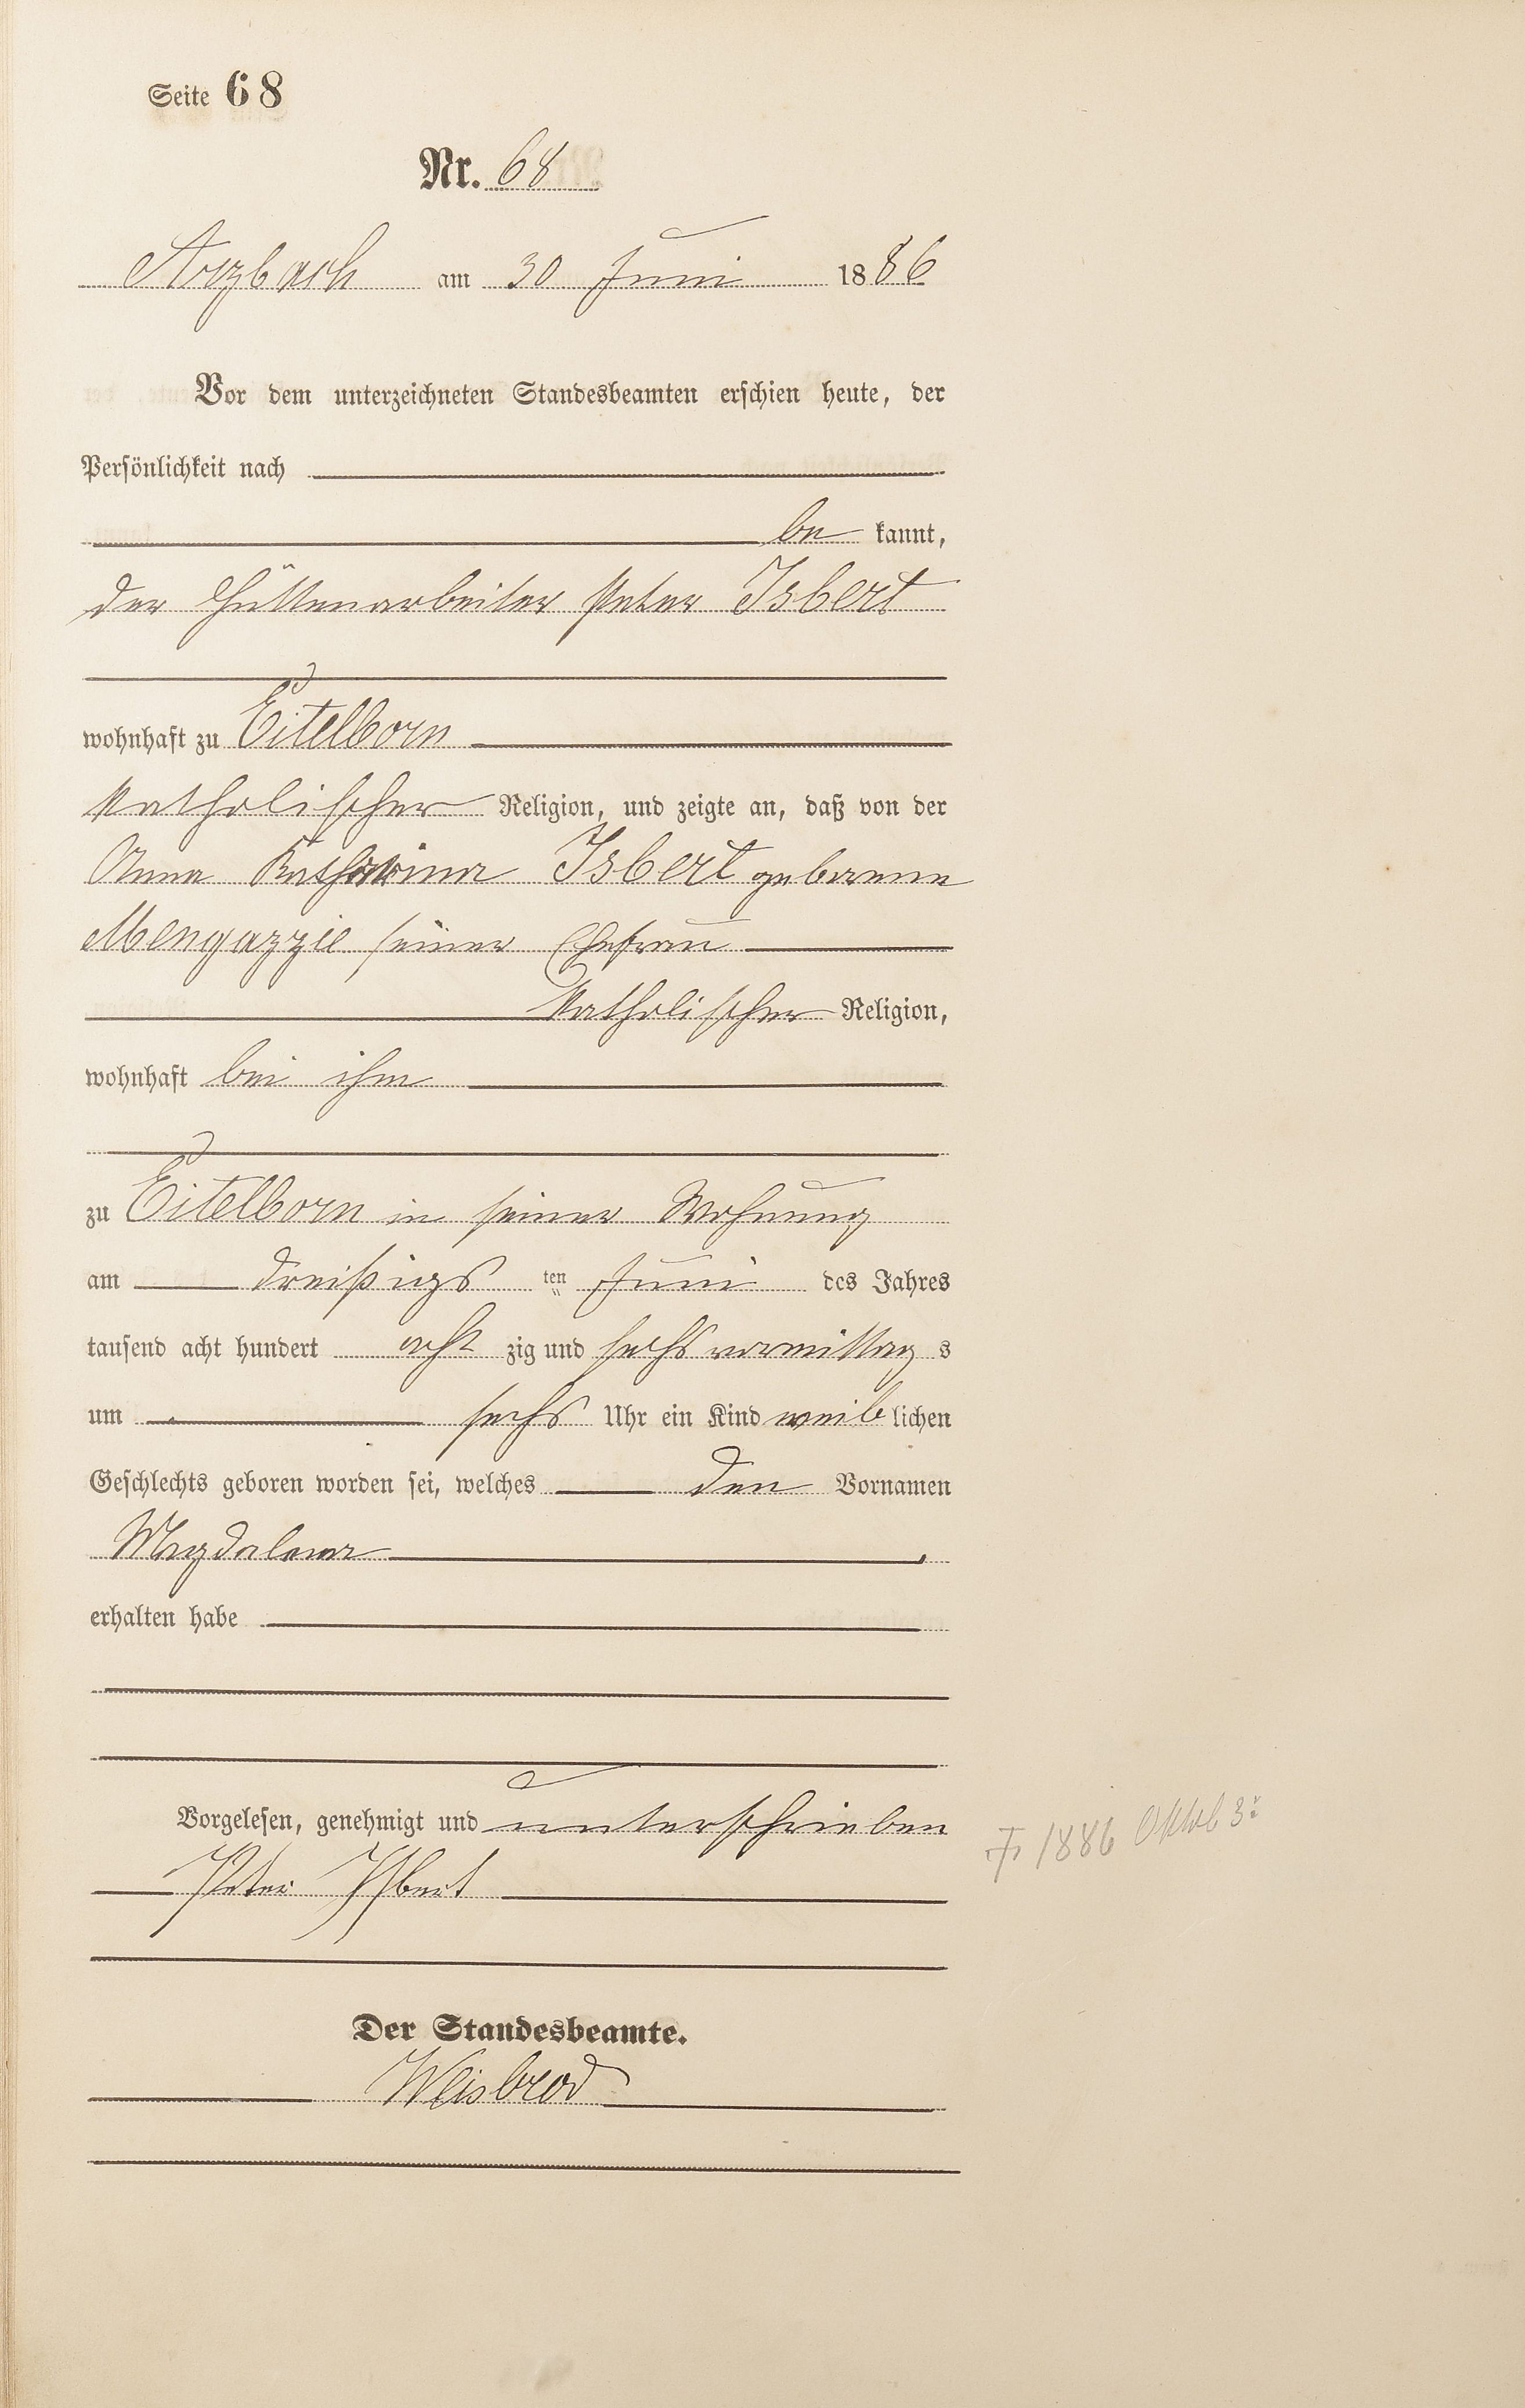 Seite 68
Nr. 68
Arzbach am 30 Juni 1886
Vor dem unterzeichneten Standesbeamten erschien heute, der
Persönlichkeit nach
be kannt,
der Hüttenarbeiter Peter Isbert
wohnhaft zu Eitelborn
katholischer Religion, und zeigte an, daß von der
Anna Katharina Isbert geborene
Mengazzie seiner Ehefrau
katholischer Religion,
wohnhaft bei ihm
zu Eitelborn in seiner Wohnung
am dreißigs ten Juni des Jahres
tausend acht hundert acht zig und sechs vormittag s
um sechs Uhr ein Kind weib lichen
Geschlechts geboren worden sei, welches den Vornamen
Magdalena
erhalten habe
Vorgelesen, genehmigt und unterschrieben
† 1886 Oktob 3:
Peter Isbert
Der Standesbeamte.
Weisbrod